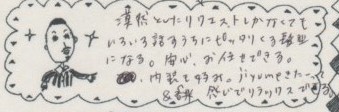 漠然としたリクエストしかなくても
いろいろ話すうちにピッタリくる髪型
になる。安心、お任せできる。
内装も好み。jiyuu
&音楽 感じでリラックスできる